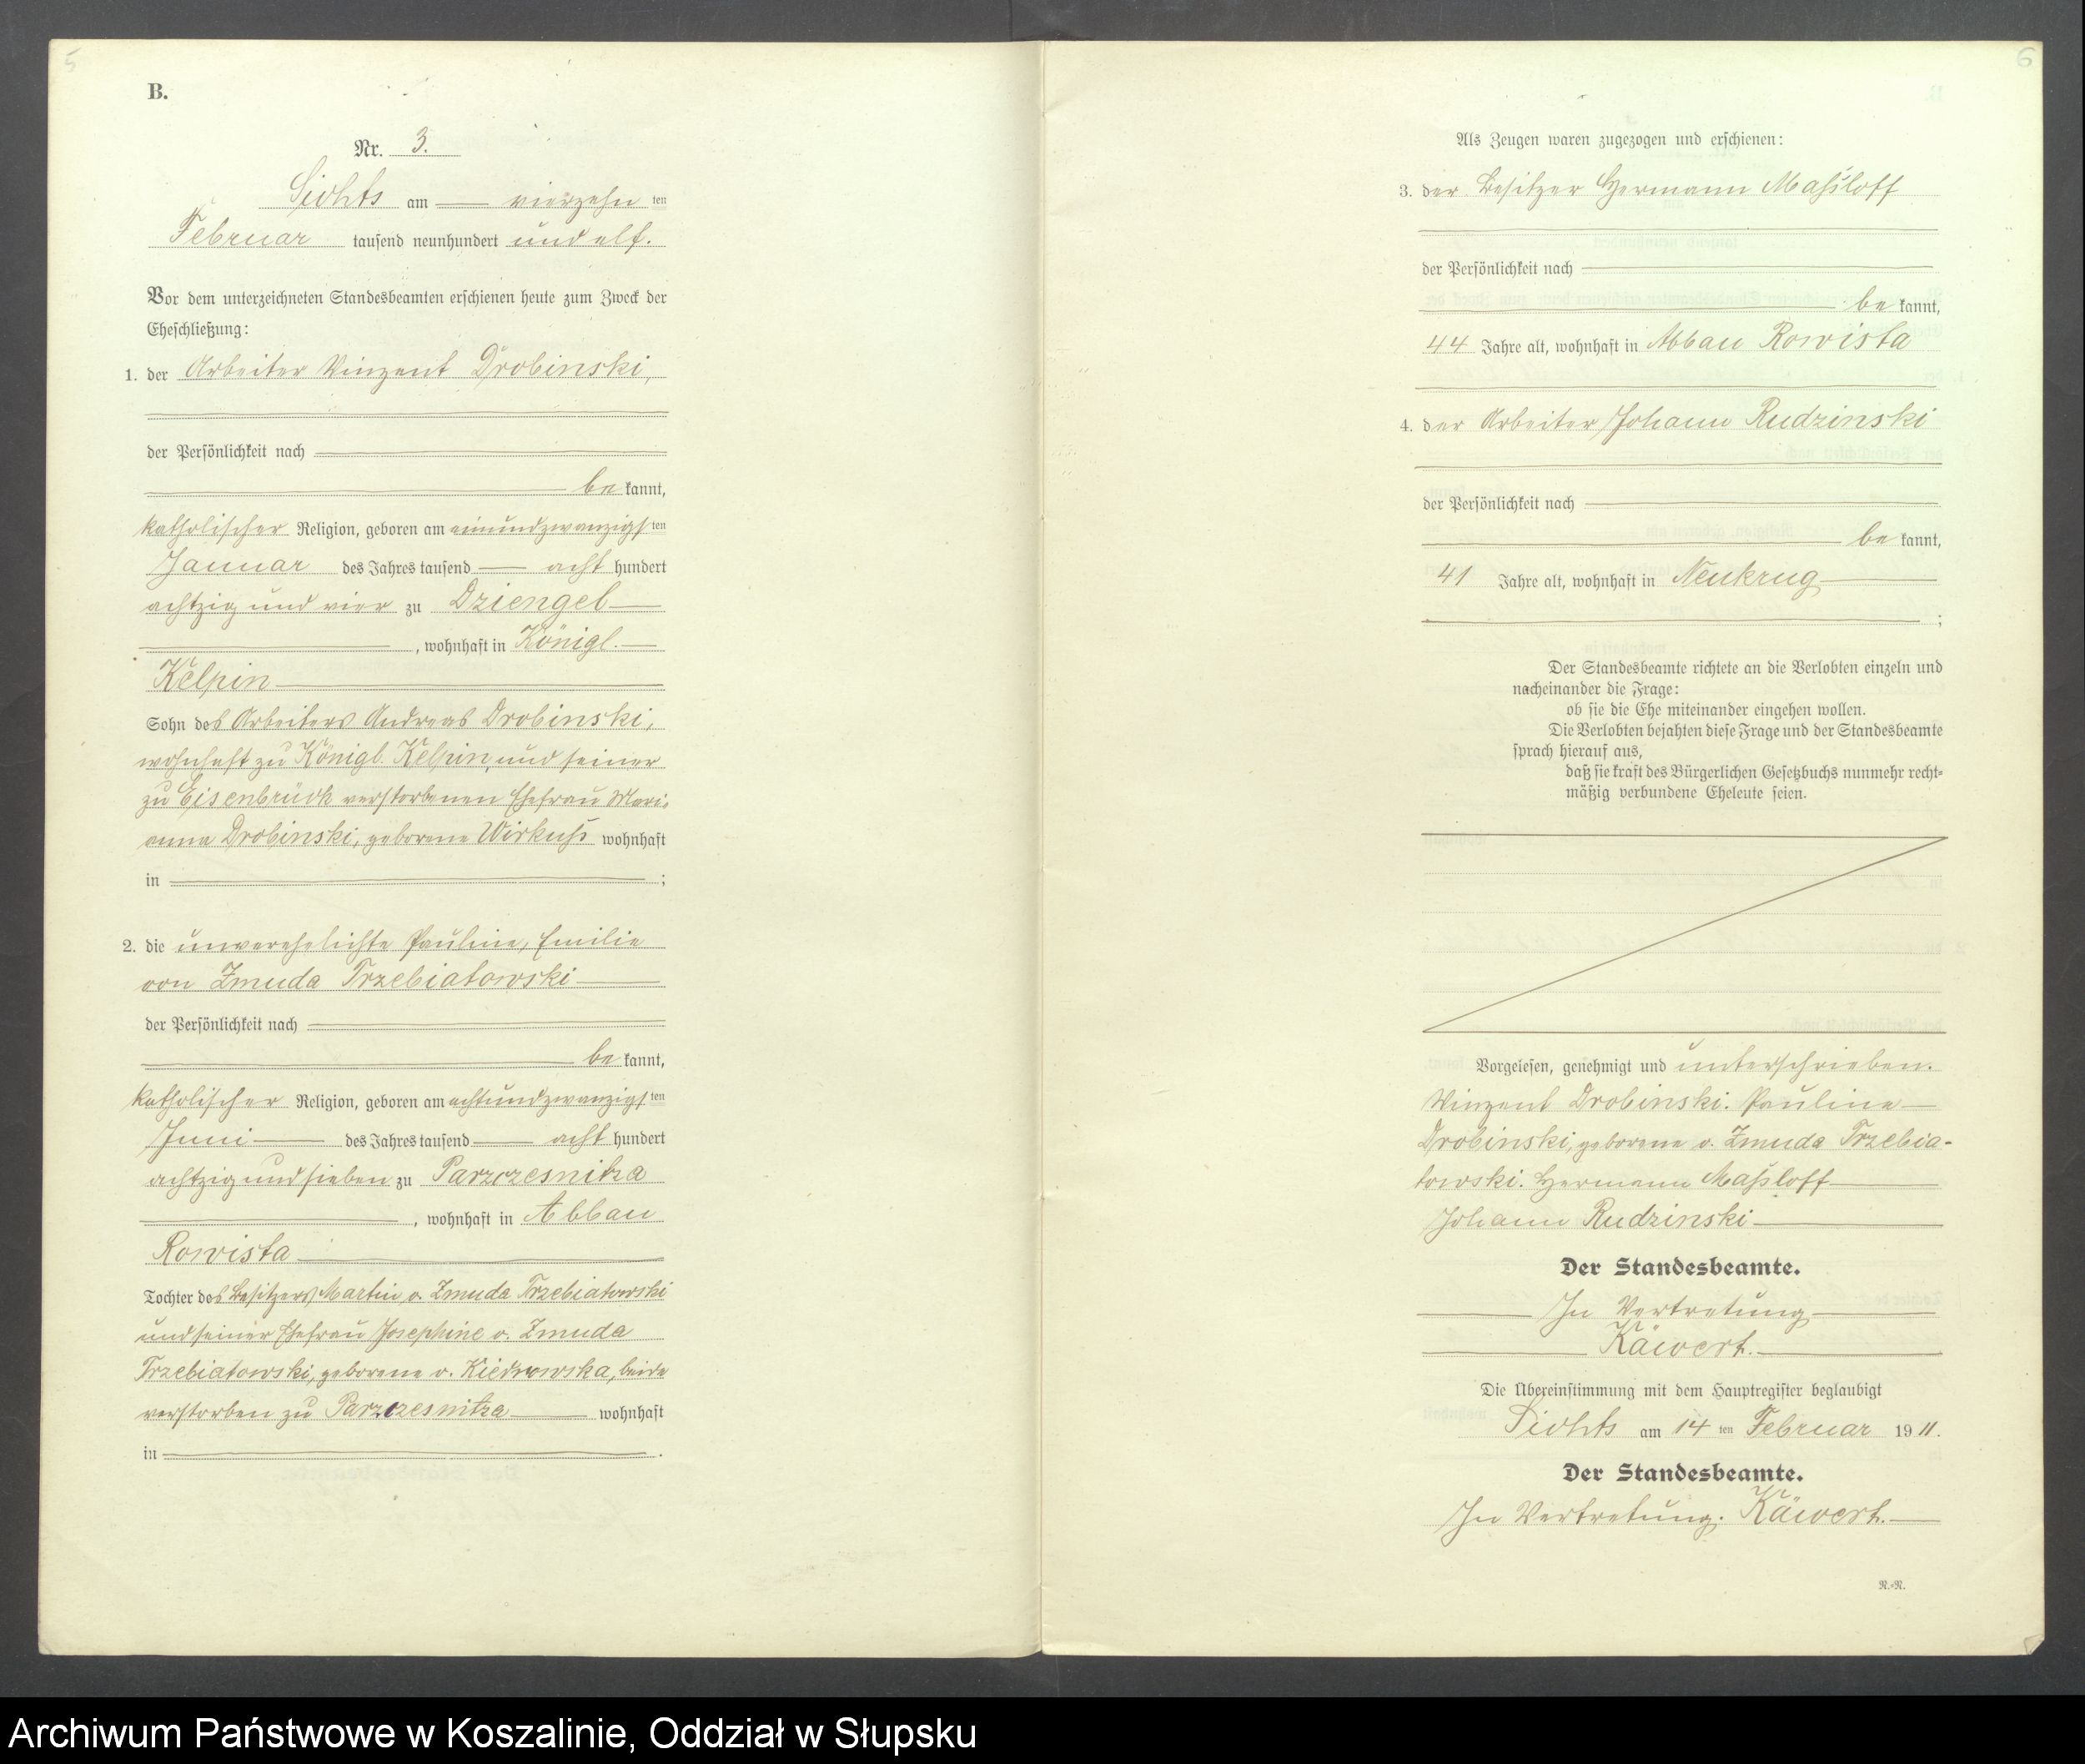 5
B.
Nr. 3.
Sichts am — vierzehn ten
Februar tausend neunhundert und elf.
Vor dem unterzeichneten Standesbeamten erschienen heute zum Zweck der
Eheschließung:
1. der Arbeiter Vinzent Drobinski,
der Persönlichkeit nach
be kannt,
katholischer Religion, geboren am einundzwanzigs ten
Januar des Jahres tausend — acht hundert
achtzig und vier zu Dziengel —
, wohnhaft in Königl. —
Kelpin —
Sohn des Arbeiters Andreas Drobinski,
wohnhaft zu Königl. Kelpin, und seiner
zu Eisenbrück verstorbenen Ehefrau Mari-
anna Drobinski, geborene Wirkuß wohnhaft
in — ;
2. die unverehelichte Pauline, Emilie
von Zmuda Trzebiatowski —
der Persönlichkeit nach
be kannt,
katholischer Religion, geboren am achtundzwanzigs ten
Juni — des Jahres tausend — acht hundert
achtzig und sieben zu Parzczesnitza
, wohnhaft in Abbau
Rowista —
Tochter des Besitzers Martin v. Zmuda Trzebiatowski
und seiner Ehefrau Josephine v. Zmuda
Trzebiatowski, geborene v. Kiedrowska, beide
verstorben zu Parzczesnitza — wohnhaft
in — .
6
Als Zeugen waren zugezogen und erschienen:
3. der Besitzer Hermann Maßloff
der Persönlichkeit nach
be kannt,
44 Jahre alt, wohnhaft in Abbau Rowista
4. der Arbeiter Johann Rudzinski
der Persönlichkeit nach
be kannt,
41 Jahre alt, wohnhaft in Neukrug —
;
Der Standesbeamte richtete an die Verlobten einzeln und
nacheinander die Frage:
ob sie die Ehe miteinander eingehen wollen.
Die Verlobten bejahten diese Frage und der Standesbeamte
sprach hierauf aus,
daß sie kraft des Bürgerlichen Gesetzbuchs nunmehr recht-
mäßig verbundene Eheleute seien.
Vorgelesen, genehmigt und unterschrieben.
Vinzent Drobinski. Pauline —
Drobinski, geborene v. Zmuda Trzebia-
towski. Hermann Maßloff —
Johann Rudzinski —
Der Standesbeamte.
In Vertretung
Käwert.
Die Übereinstimmung mit dem Hauptregister beglaubigt
Sichts am 14 ten Februar 19 11.
Der Standesbeamte.
In Vertretung. Käwert. —
R.-R.
Archiwum Państwowe w Koszalinie, Oddział w Słupsku